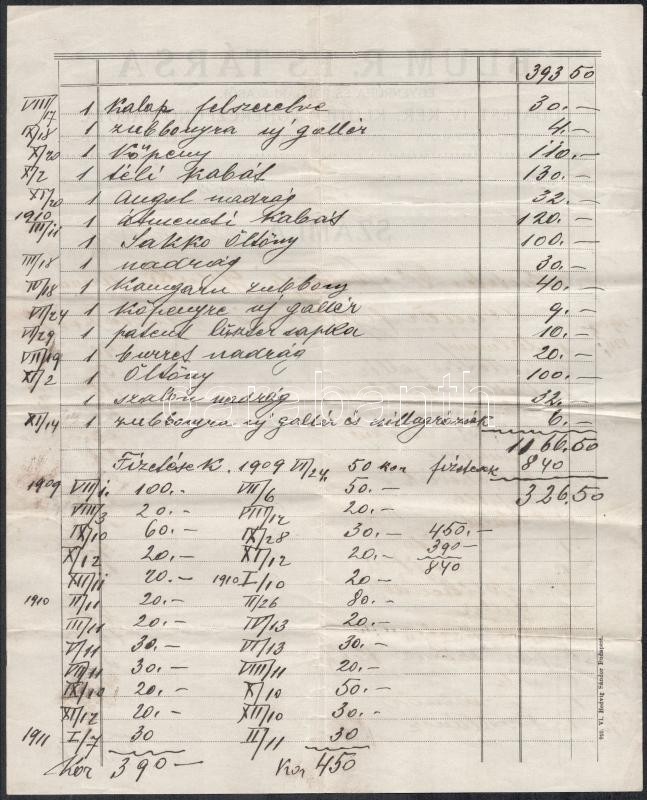 393 50
VIII/17 1 Kalap felszerelve 30.—
IX/18 1 zubbonyra uj gallér 4.—
X/20 1 Köpeny 110.—
X/2 1 téli Kabát 130.—
XI/20 1 Angol nadrág 32.—
1910
III/11 1 Átmeneti Kabát 120.—
1 Sakko Öltöny 100.—
III/18 1 nadrág 30.—
IV/18 1 Kamgarn zubbony 40.—
VI/24 1 Köpenyre uj gallér 9.—
VI/29 1 patent lüszter sapka 10.—
VII/19 1 nadrág 20.—
XI/2 1 Öltöny 100.—
1 szalon nadrág 32.—
XI/14 1 zubbonyra uj gallér és 6.—
1166.50
Fizetések 1909 VI/24 50 kor fizetések 840
326.50
1909 VII/1. 100.— VII/6 50.—
VIII/3 20.— VIII/12 20.—
IX/10 60.— IX/28 30.— 450.—
X/12 20.— XI/12 20.— 390—
840
XII/11 20.— 1910 I/10 20—
1910 II/11 20.— II/26 80.—
III/11 20.— IV/13 20.—
V/11 30.— VI/13 30.—
VII/11 30.— VIII/11 20.—
IX/10 20.— X/10 50.—
XI/12 20.— XII/10 30.—
1911 I/7 30 II/11 30
Kor 390— Kor 450
VI. Hedvig Sándor Budapest.
darabanth